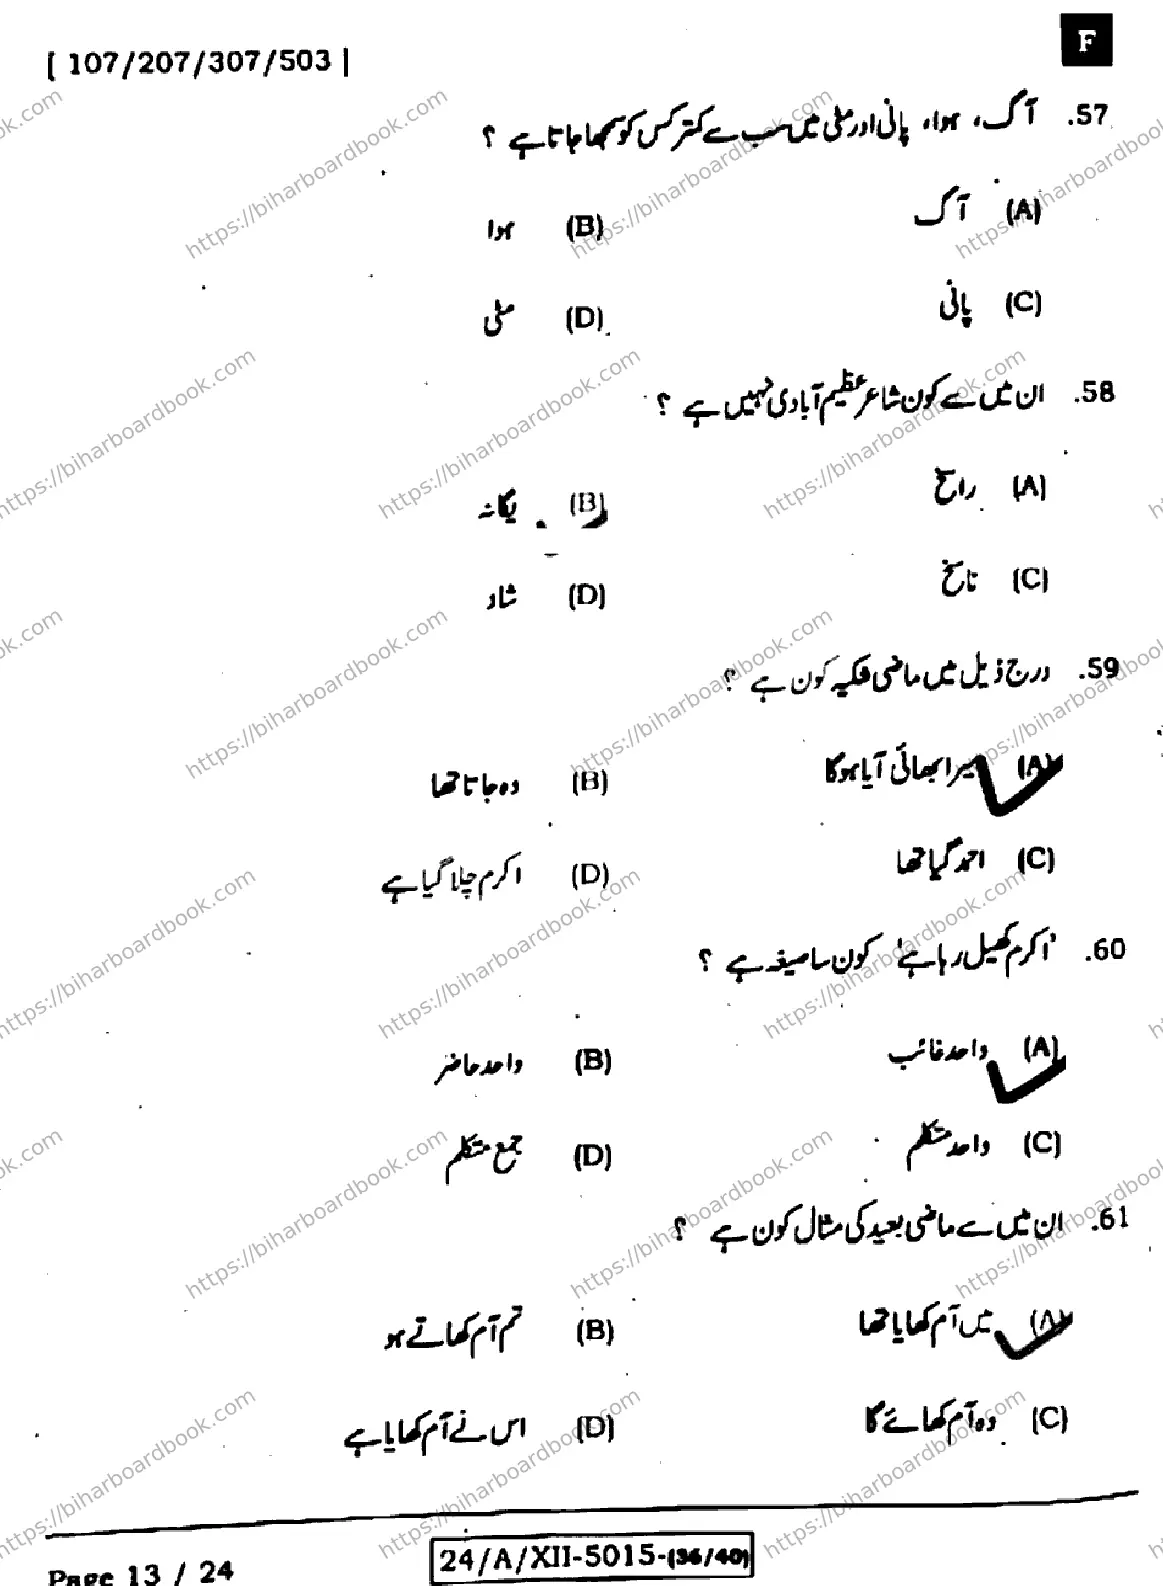 [ 107/207/307/503 ]
F
57. آگ، ہوا، پانی اور مٹی میں سب سے کمتر کس کو سمجھا جاتا ہے ؟
(A) آگ (B) ہوا
(C) پانی (D) مٹی
58. ان میں سے کون شاعر عظیم آبادی نہیں ہے ؟
(A) راسخ (B) یگانہ
(C) ناسخ (D) شاد
59. درج ذیل میں ماضی شکیہ کون ہے ؟
(A) میرا بھائی آیا ہوگا (B) وہ جاتا تھا
(C) احمد گیا تھا (D) اکرم چلا گیا ہے
60. 'اکرم کھیل رہا ہے' کون سا صیغہ ہے ؟
(A) واحد غائب (B) واحد حاضر
(C) واحد متکلم (D) جمع متکلم
61. ان میں سے ماضی بعید کی مثال کون ہے ؟
(A) میں آم کھایا تھا (B) تم آم کھاتے ہو
(C) وہ آم کھائے گا (D) اس نے آم کھایا ہے
Page 13 / 24
24/A/XII-5015-(36/40)
https://biharboardbook.com